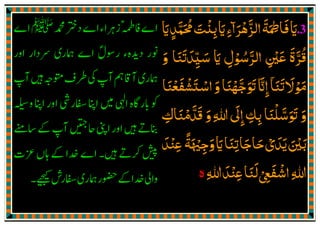 3۔ يَا فَاطِمَةُ الزَّهْرَاءُ يَا بِنْتَ مُحَمَّدٍ يَا
قُرَّةَ عَيْنِ الرَّسُوْلِ يَا سَيِّدَتَنَا وَ
مَوْلَاتَنَا اِنَّا تَوَجَّهْنَا وَ اسْتَشْفَعْنَا
وَ تَوَسَّلْنَا بِكِ اِلَى اللهِ وَ قَدَّمْنَاكِ
بَيْنَ يَدَىْ حَاجَاتِنَا يَا وَجِيْهَةً عِنْدَ
اللهِ اشْفَعِىْ لَنَا عِنْدَ اللهِ
اے فاطمہ زہراءؑ اے دختر محمد ﷺ اے
نور دیدہ رسولؐ اے ہماری سردار اور
ہماری آقا ہم آپ کی طرف متوجہ ہیں آپ
کو بارگاہ الٰہی میں اپنا سفارشی اور اپنا وسیلہ
بناتے ہیں اور اپنی حاجتیں آپ کے سامنے
پیش کرتے ہیں۔ اے خدا کے ہاں عزت
والی خدا کے حضور ہماری سفارش کیجیے۔